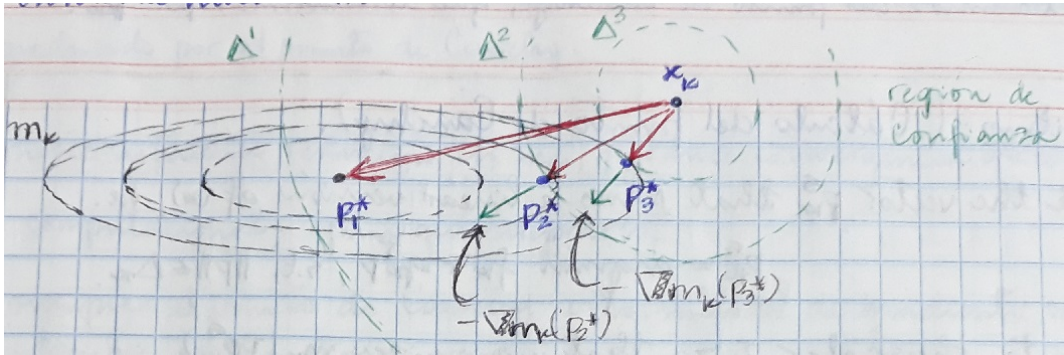 Δ¹ Δ² Δ³
x_k
región de
confianza
m_k
P₁* P₂* P₃*
-∇m_k(P₃*)
-∇m_k(P₂*)